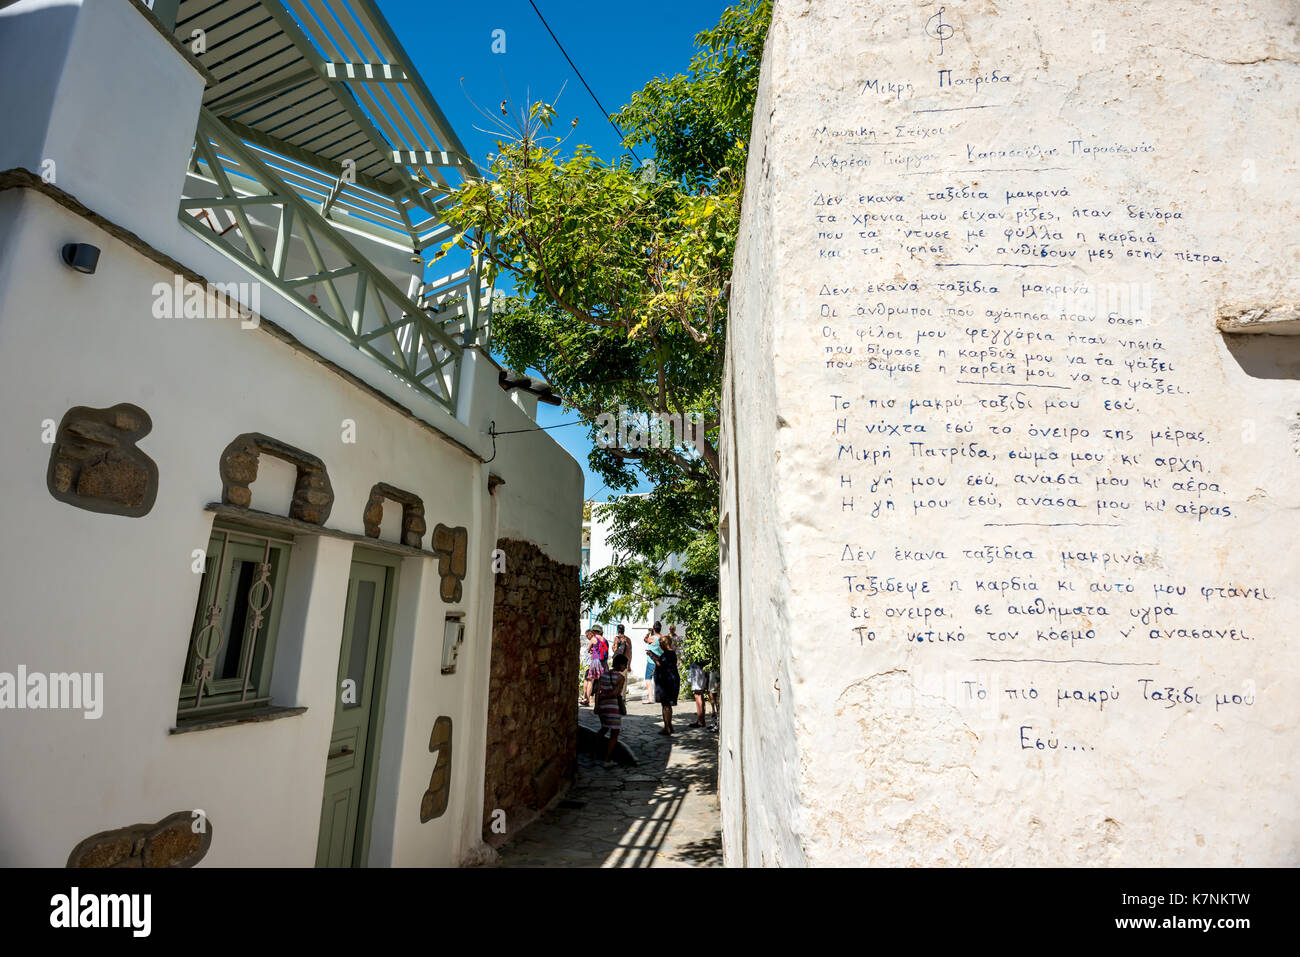 Μικρή Πατρίδα
Μουσική - Στίχοι
Ανδρέου Γιώργος - Καρασούλος Παρασκευάς
Δεν έκανα ταξίδια μακρινά
τα χρόνια μου είχαν ρίζες, ήταν δένδρα
που τα 'ντυσε με φύλλα η καρδιά
και τα 'φησε ν' ανθίσουν μες στην πέτρα.
Δεν έκανα ταξίδια μακρινά
Οι άνθρωποι που αγάπησα ήταν δάση
Οι φίλοι μου φεγγάρια ήταν νησιά
που δίψασε η καρδιά μου να τα ψάξει
που δίψασε η καρδιά μου να τα ψάξει.
Το πιο μακρύ ταξίδι μου εσύ.
Η νύχτα εσύ το όνειρο της μέρας.
Μικρή Πατρίδα, σώμα μου κι αρχή.
Η γή μου εσύ, ανάσα μου κι' αέρα.
Η γή μου εσύ, ανάσα μου κι' αέρας.
Δεν έκανα ταξίδια μακρινά
Ταξίδεψε η καρδιά κι αυτό μου φτάνει.
σε όνειρα, σε αισθήματα υγρά
Το μυστικό τον κόσμο ν' ανασάνει.
Το πιό μακρύ Ταξίδι μου
Εσύ....
a alamy stock photo
K7NKTW
www.alamy.com